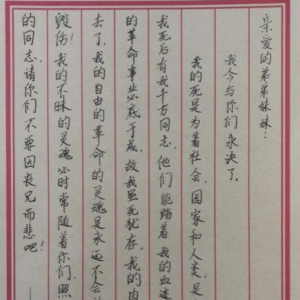 亲爱的弟弟妹妹：
我今与你们永决了。
我的死是为着社会、国家和人类，是
我死后有我千万同志，他们能踏着我的血迹
的革命事业必底于成，故我虽死犹存。我的肉
去了，我的自由的革命的灵魂是永远不会
毁伤！我的不昧的灵魂必时常随着你们，照
的同志，请你们不要因丧兄而悲吧！